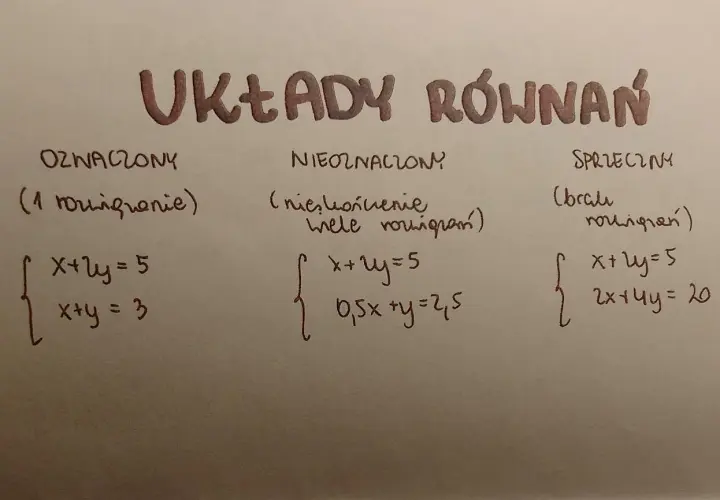 UKŁADY RÓWNAŃ
OZNACZONY
(1 rozwiązanie)
x+2y=5
x+y=3
NIEOZNACZONY
(nieskończenie
wiele rozwiązań)
x+2y=5
0,5x+y=2,5
SPRZECZNY
(brak
rozwiązań)
x+2y=5
2x+4y=20